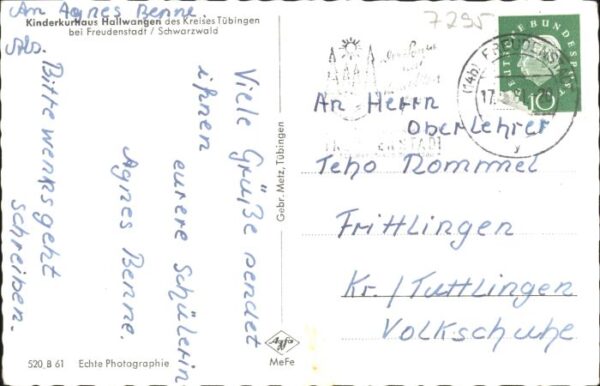 An Agnes Benne
Kinderkurhaus Hallwangen des Kreises Tübingen
bei Freudenstadt / Schwarzwald
Abs.
Viele Grüße sendet
ihnen
eurere Schülerin
Agnes Benne.
Bitte wenks geht
schreiben.
Gebr. Metz, Tübingen
7295
DEUTSCHE BUNDESPOST
10
(14b) FREUDENSTADT
17.
An Herrn
Oberlehrer
Teho Rommel
Frittlingen
Kr. / Tuttlingen
Volkschuhe
Agfa
MeFe
520 B 61 Echte Photographie